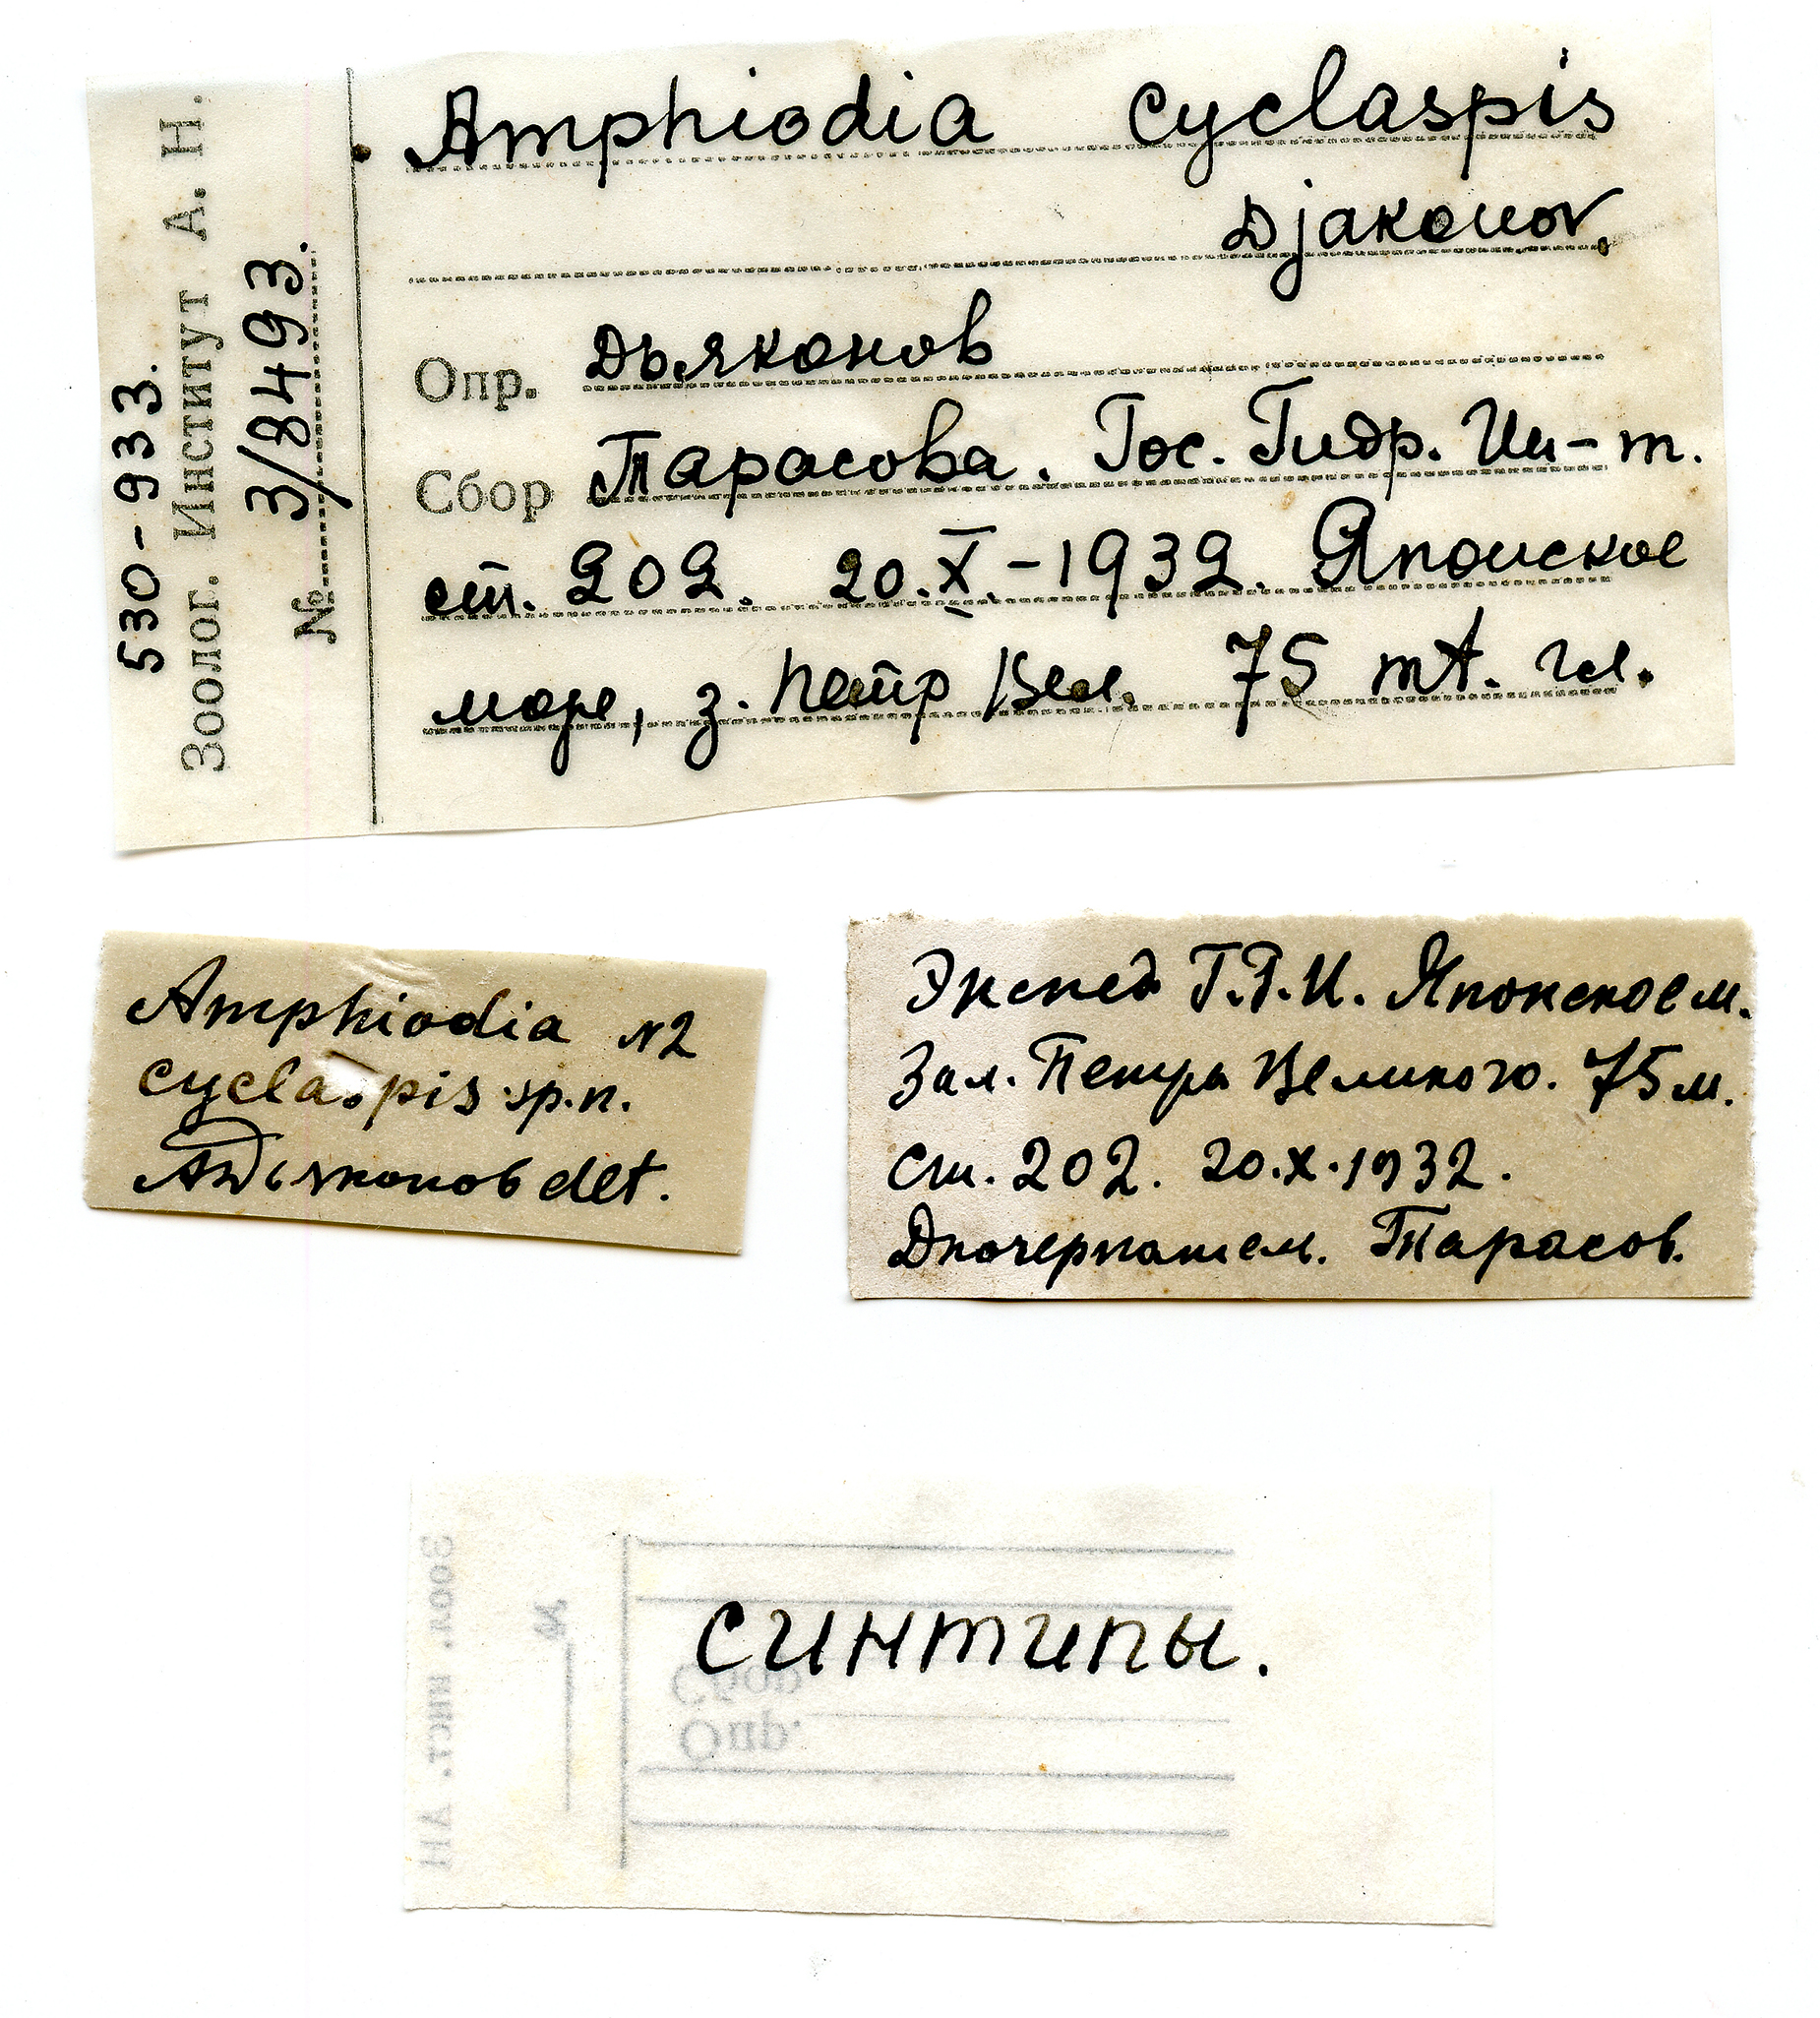 530-933.
Зоолог. Институт А. Н.
№ 3/8493.
Amphiodia cyclaspis
Djakonov.
Опр. Дьяконов
Сбор Тарасова. Гос. Гидр. Ин-т.
ст. 202. 20.X.-1932. Японское
море, з. Петр Вел. 75 mt. гл.
Amphiodia №2
cyclaspis sp.n.
АДьяконов det.
Экспед Г.Г.И. Японское м.
Зал. Петра Великого. 75 м.
Ст. 202. 20.X.1932.
Дночерпателем. Тарасов.
Зоол. инст. АН
№
синтипы.
Сбор
Опр.